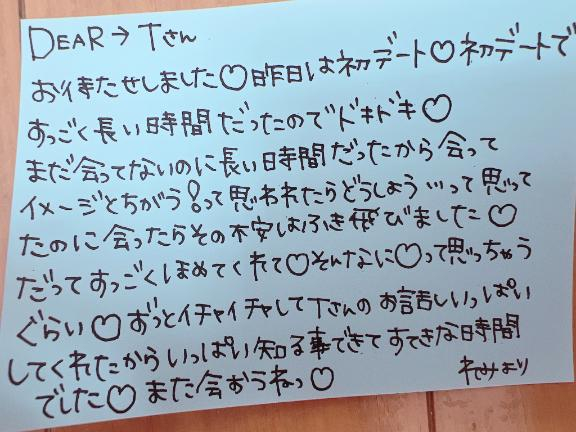 DEAR→Tさん
お待たせしました♡昨日は初デート♡初デートで
すっごく長い時間だったのでドキドキ♡
まだ会ってないのに長い時間だったから会って
イメージとちがう!って思われたらどうしよう…って思って
たのに会ったらその不安はふき飛びました♡
だってすっごくほめてくれて♡そんなに♡って思っちゃう
ぐらい♡ずっとイチャイチャしてTさんのお話しいっぱい
してくれたからいっぱい知る事できてすてきな時間
でした♡また会おうねっ♡ れみより